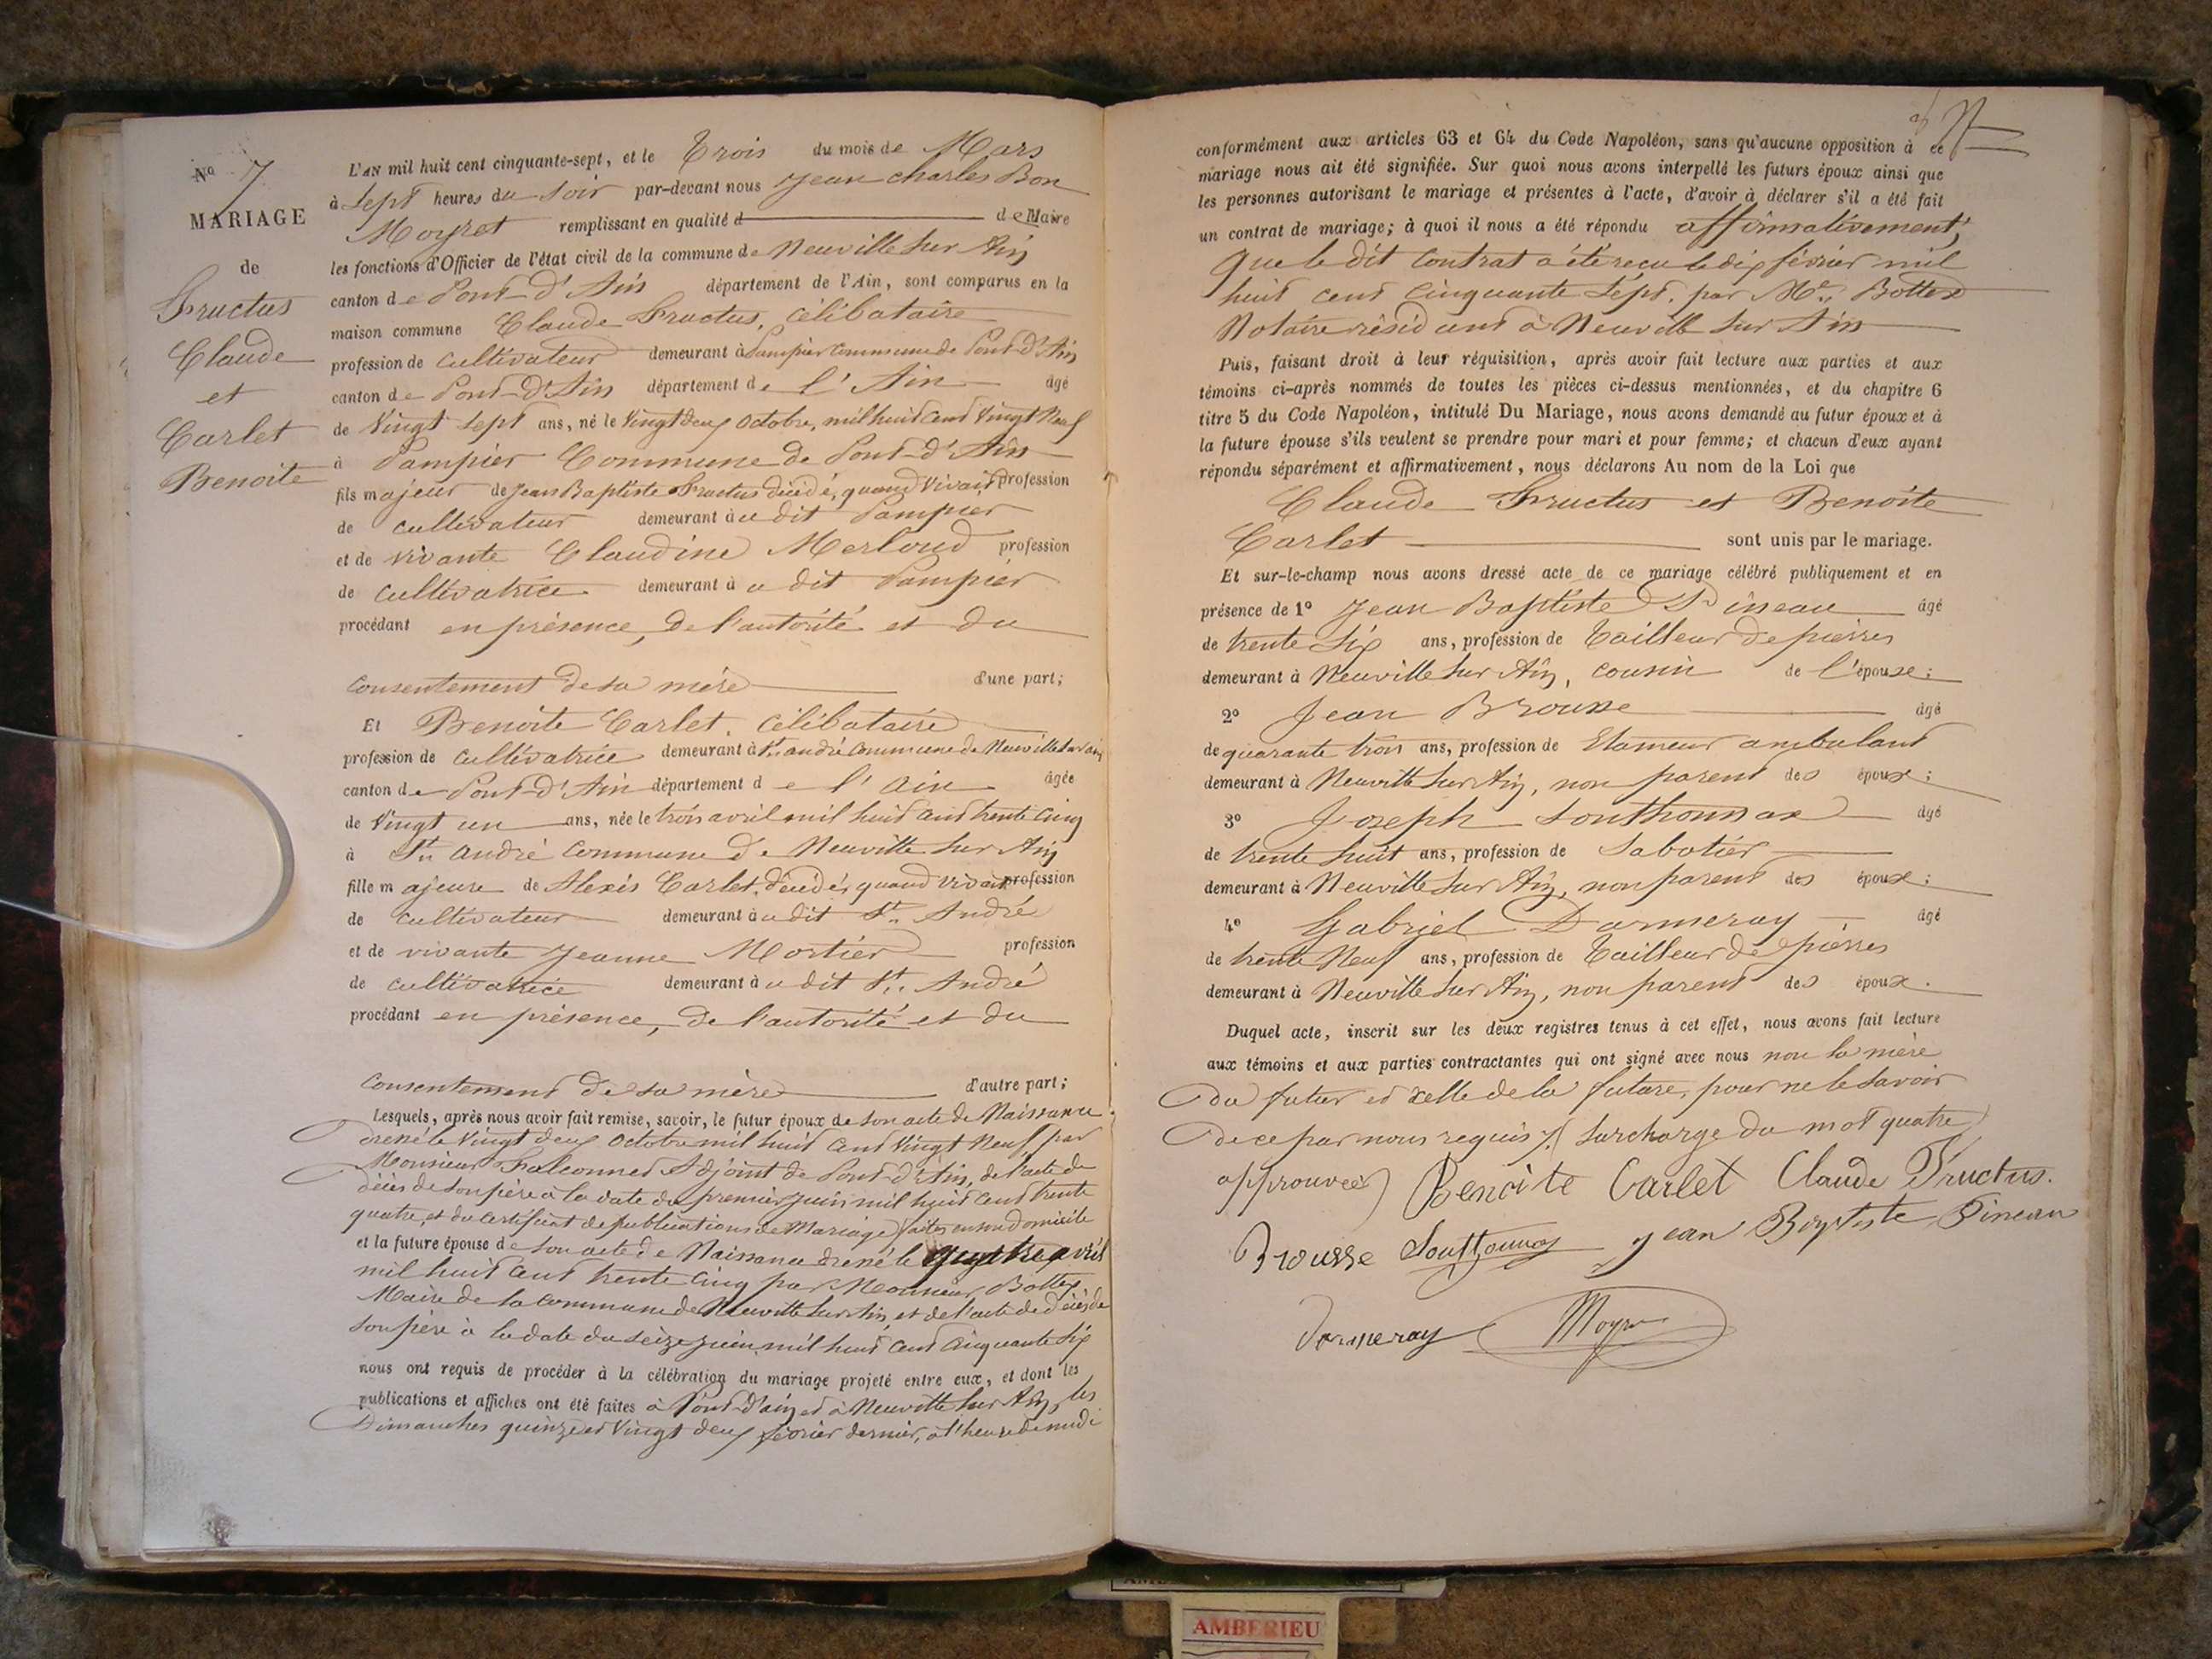 No 7
MARIAGE
de
Fructus
Claude
et
Carlet
Benoite
L'AN mil huit cent cinquante-sept, et le Trois du mois de Mars
à Sept heures du Soir par-devant nous Jean Charles Bon
Moyret remplissant en qualité d de Maire
les fonctions d'Officier de l'état civil de la commune de Neuville sur Ain
canton de Pont-d'Ain département de l'Ain, sont comparus en la
maison commune Claude Fructus, célibataire
profession de cultivateur demeurant à Dampier commune de Pont-d'Ain
canton de Pont-d'Ain département de l'Ain âgé
de Vingt Sept ans, né le Vingt deux Octobre, mil huit cent Vingt Neuf
à Dampier Commune de Pont-d'Ain
fils majeur de Jean Baptiste Fructus décédé, quand Vivait profession
de cultivateur demeurant au dit Dampier
et de vivante Claudine Merloud profession
de cultivatrice demeurant à u dit Dampier
procédant en présence, de l'autorité et du
consentement de sa mère d'une part;
Et Benoite Carlet, célibataire
profession de cultivatrice demeurant à St. andré commune de Neuville sur ain
canton de Pont-d'Ain département de l'ain âgée
de Vingt un ans, née le trois avril mil huit cent trente cinq
à St. andré commune de Neuville sur Ain
fille majeure de Alexis Carlet, décédé, quand vivait profession
de cultivateur demeurant à u dit St. André
et de vivante Jeanne Mortier profession
de cultivatrice demeurant à u dit St. André
procédant en présence, de l'autorité et du
consentement de sa mère d'autre part;
Lesquels, après nous avoir fait remise, savoir, le futur époux de son acte de Naissance
dressé le Vingt deux Octobre mil huit cent Vingt Neuf par
Monsieur Falconnet Adjoint de Pont-d'Ain, de l'acte de
décès de son père à la date du premier juin mil huit cent trente
quatre, et du certificat de publications de Mariage faites en son domicile
et la future épouse de son acte de Naissance dressé le quatre avril
mil huit cent trente cinq par Monsieur Bottex
Maire de la commune de Neuville sur Ain et de l'acte de décès de
son père à la date du seize juin mil huit cent cinquante six
nous ont requis de procéder à la célébration du mariage projeté entre eux, et dont les
publications et affiches ont été faites à Pont-d'ain et à Neuville sur Ain, les
Dimanches quinze et Vingt deux février dernier, à l'heure de midi
conformément aux articles 63 et 64 du Code Napoléon, sans qu'aucune opposition à ce
mariage nous ait été signifiée. Sur quoi nous avons interpellé les futurs époux ainsi que
les personnes autorisant le mariage et présentes à l'acte, d'avoir à déclarer s'il a été fait
un contrat de mariage; à quoi il nous a été répondu affirmativement,
que le dit contrat a été reçu le dix février mil
huit cent cinquante Sept, par Me. Bottex
Notaire résidant à Neuville sur Ain
Puis, faisant droit à leur réquisition, après avoir fait lecture aux parties et aux
témoins ci-après nommés de toutes les pièces ci-dessus mentionnées, et du chapitre 6
titre 5 du Code Napoléon, intitulé Du Mariage, nous avons demandé au futur époux et à
la future épouse s'ils veulent se prendre pour mari et pour femme; et chacun d'eux ayant
répondu séparément et affirmativement, nous déclarons Au nom de la Loi que
Claude Fructus et Benoite
Carlet sont unis par le mariage.
Et sur-le-champ nous avons dressé acte de ce mariage célébré publiquement et en
présence de 1o Jean Baptiste Pineau âgé
de trente six ans, profession de Tailleur de pierres
demeurant à Neuville sur Ain, cousin de l'épouse;
2o Jean Brousse âgé
de quarante trois ans, profession de Etameur ambulant
demeurant à Neuville sur Ain, non parent des époux;
3o Joseph Southonnax âgé
de trente huit ans, profession de Sabotier
demeurant à Neuville sur Ain, non parent des époux;
4o Gabriel Darmeray âgé
de trente Neuf ans, profession de Tailleur de pierres
demeurant à Neuville sur Ain, non parent des époux.
Duquel acte, inscrit sur les deux registres tenus à cet effet, nous avons fait lecture
aux témoins et aux parties contractantes qui ont signé avec nous non la mère
du futur et celle de la future, pour ne le savoir
de ce par nous requis (surcharge du mot quatre
approuvée) Benoite Carlet Claude Fructus.
Brousse Southonnax jean Baptiste Pineau
Darmeray Moyret
AMBERIEU